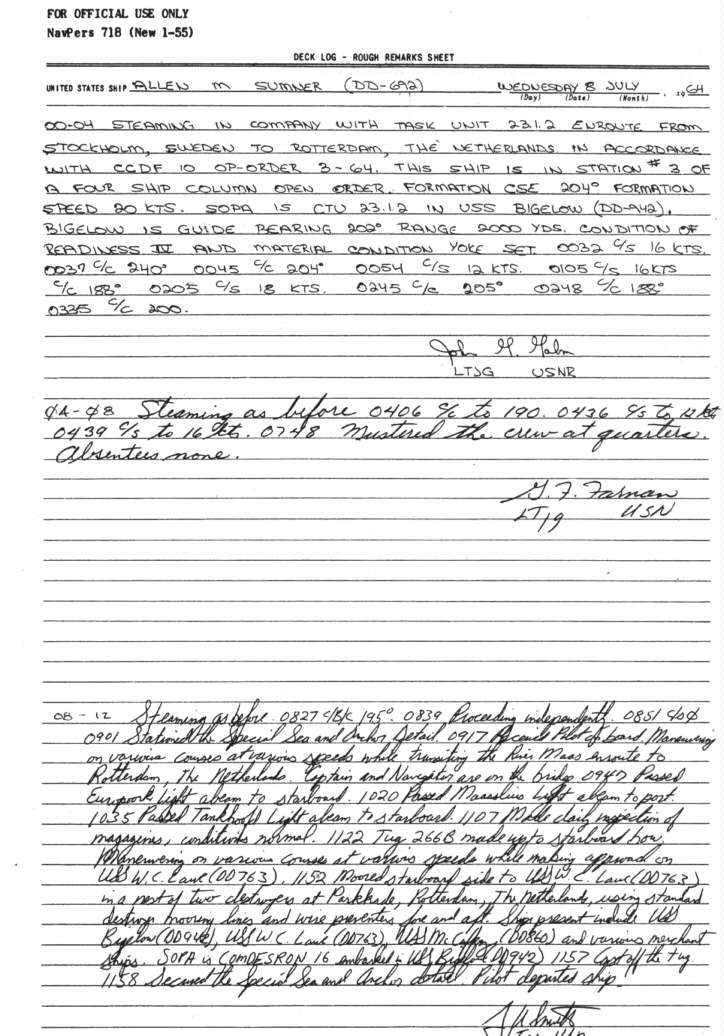 FOR OFFICIAL USE ONLY
NavPers 718 (New 1-55)
DECK LOG - ROUGH REMARKS SHEET
UNITED STATES SHIP ALLEN M SUMNER (DD-692) WEDNESDAY 8 JULY, 1964
(Day) (Date) (Month)
00-04 STEAMING IN COMPANY WITH TASK UNIT 23.1.2 ENROUTE FROM
STOCKHOLM, SWEDEN TO ROTTERDAM, THE NETHERLANDS. IN ACCORDANCE
WITH CCDF 10 OP-ORDER 3-64. THIS SHIP IS IN STATION # 3 OF
A FOUR SHIP COLUMN OPEN ORDER. FORMATION CSE 204° FORMATION
SPEED 20 KTS. SOPA IS CTU 23.1.2 IN USS BIGELOW (DD-942).
BIGELOW IS GUIDE BEARING 202° RANGE 2000 YDS. CONDITION OF
READINESS IV AND MATERIAL CONDITION YOKE SET. 0032 C/S 16 KTS.
0037 C/C 240° 0045 C/C 204° 0054 C/S 12 KTS. 0105 C/S 16KTS
C/C 188° 0205 C/S 18 KTS. 0245 C/C 205° 0248 C/C 188°
0335 C/C 200.
John G. Malm
LTJG USNR
04-08 Steaming as before 0406 C/C to 190. 0436 C/S to 12 kts
0439 C/S to 16 kts. 0748 Mustered the crew at quarters.
Absentees none.
G. F. Farnan
LTjg USN
08-12 Steaming as before. 0827 C/C 195°. 0839 Proceeding independently. 0851
0901 Stationed the Special Sea and Anchor Detail. 0917 Received Pilot on board. Maneuvering
on various courses at various speeds while transiting the River Maas enroute to
Rotterdam, The Netherlands. Captain and Navigator are on the bridge 0947 Passed
Light abeam to starboard. 1020 Passed Maassluis Light abeam to port.
1035 Passed Light abeam to starboard. 1107 Made daily inspection of
magazines, conditions normal. 1122 Tug 266B made up to starboard bow.
Maneuvering on various courses at various speeds while making approach on
USS W.C. Lawe (DD763). 1152 Moored starboard side to USS W.C. Lawe (DD763)
in a nest of two destroyers at Parkkade, Rotterdam, The Netherlands, using standard
destroyer mooring lines and wire preventers fore and aft. Ships present include USS
Bigelow (DD942), USS W.C. Lawe (DD763), USS (DD860) and various merchant
ships. SOPA is COMDESRON 16 embarked in USS Bigelow (DD942) 1157 Cast off the tug.
1158 Secured the Special Sea and Anchor detail. Pilot departed ship.
Smith